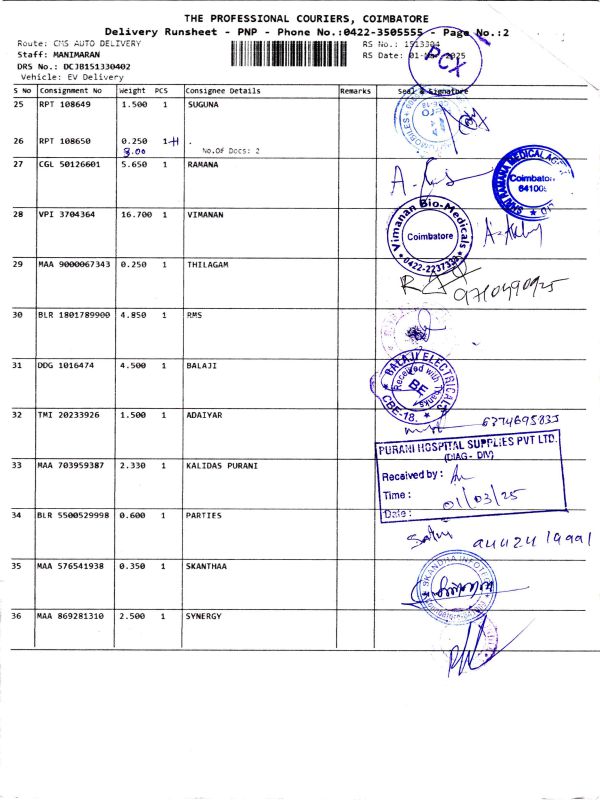 THE PROFESSIONAL COURIERS, COIMBATORE
Delivery Runsheet - PNP - Phone No.:0422-3505555 - Page No.:2
Route: CMS AUTO DELIVERY
RS No.: 1513304
Staff: MANIMARAN
RS Date: 01-Mar-2025
DRS No.: DCJB151330402
Vehicle: EV Delivery
PCX
S No Consignment No Weight PCS Consignee Details Remarks Seal & Signature
25 RPT 108649 1.500 1 SUGUNA
26 RPT 108650 0.250 1 .
3.00 No.Of Docs: 2
27 CGL 50126601 5.650 1 RAMANA
SHRI RAMANA MEDICAL
Coimbatore
28 VPI 3704364 16.700 1 VIMANAN
Vimanan Bio-Medicals
Coimbatore
29 MAA 9000067343 0.250 1 THILAGAM
30 BLR 1801789900 4.850 1 RMS
31 DDG 1016474 4.500 1 BALAJI
BALAJI ELECTRICALS
Received with Thanks
BE
CBE-18.
32 TMI 20233926 1.500 1 ADAIYAR
6374695835
33 MAA 703959387 2.330 1 KALIDAS PURANI
PURANI HOSPITAL SUPPLIES PVT LTD.
(DIAG- DIV)
Received by :
Time :
Date :
01/03/25
34 BLR 5500529998 0.600 1 PARTIES
35 MAA 576541938 0.350 1 SKANTHAA
SKANDHA INFOTECH
36 MAA 869281310 2.500 1 SYNERGY